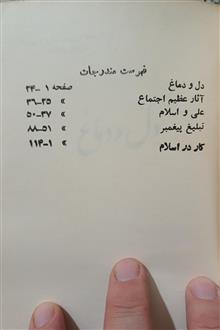 فهرست مندرجات
دل و دماغ صفحه ۱ -۲۴
آثار عظیم اجتماع » ۲۵-۳۶
علی و اسلام » ۳۷-۵۰
تبلیغ پیغمبر » ۵۱-۸۸
کار در اسلام » ۱-۱۱۴